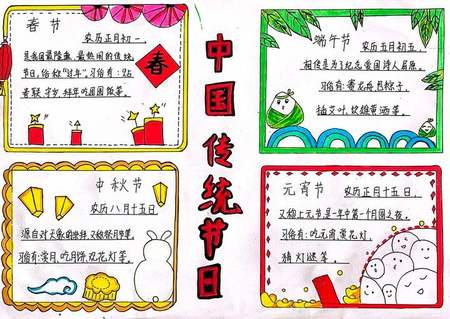 春节
农历正月初一，
是我国最隆重、最热闹的传统
节日，俗称“过年”。习俗有：贴
春联、守岁、拜年、吃团圆饭等。
春
中国传统节日
端午节
农历五月初五，
相传是为了纪念爱国诗人屈原。
习俗有：赛龙舟、吃粽子、
插艾叶、饮雄黄酒等。
中秋节
农历八月十五日
习俗有：赏月、吃月饼、玩花灯等。
元宵节
农历正月十五日，
又称上元节，是一年中第一个月圆之夜。
习俗有：吃元宵、赏花灯、
猜灯谜等。